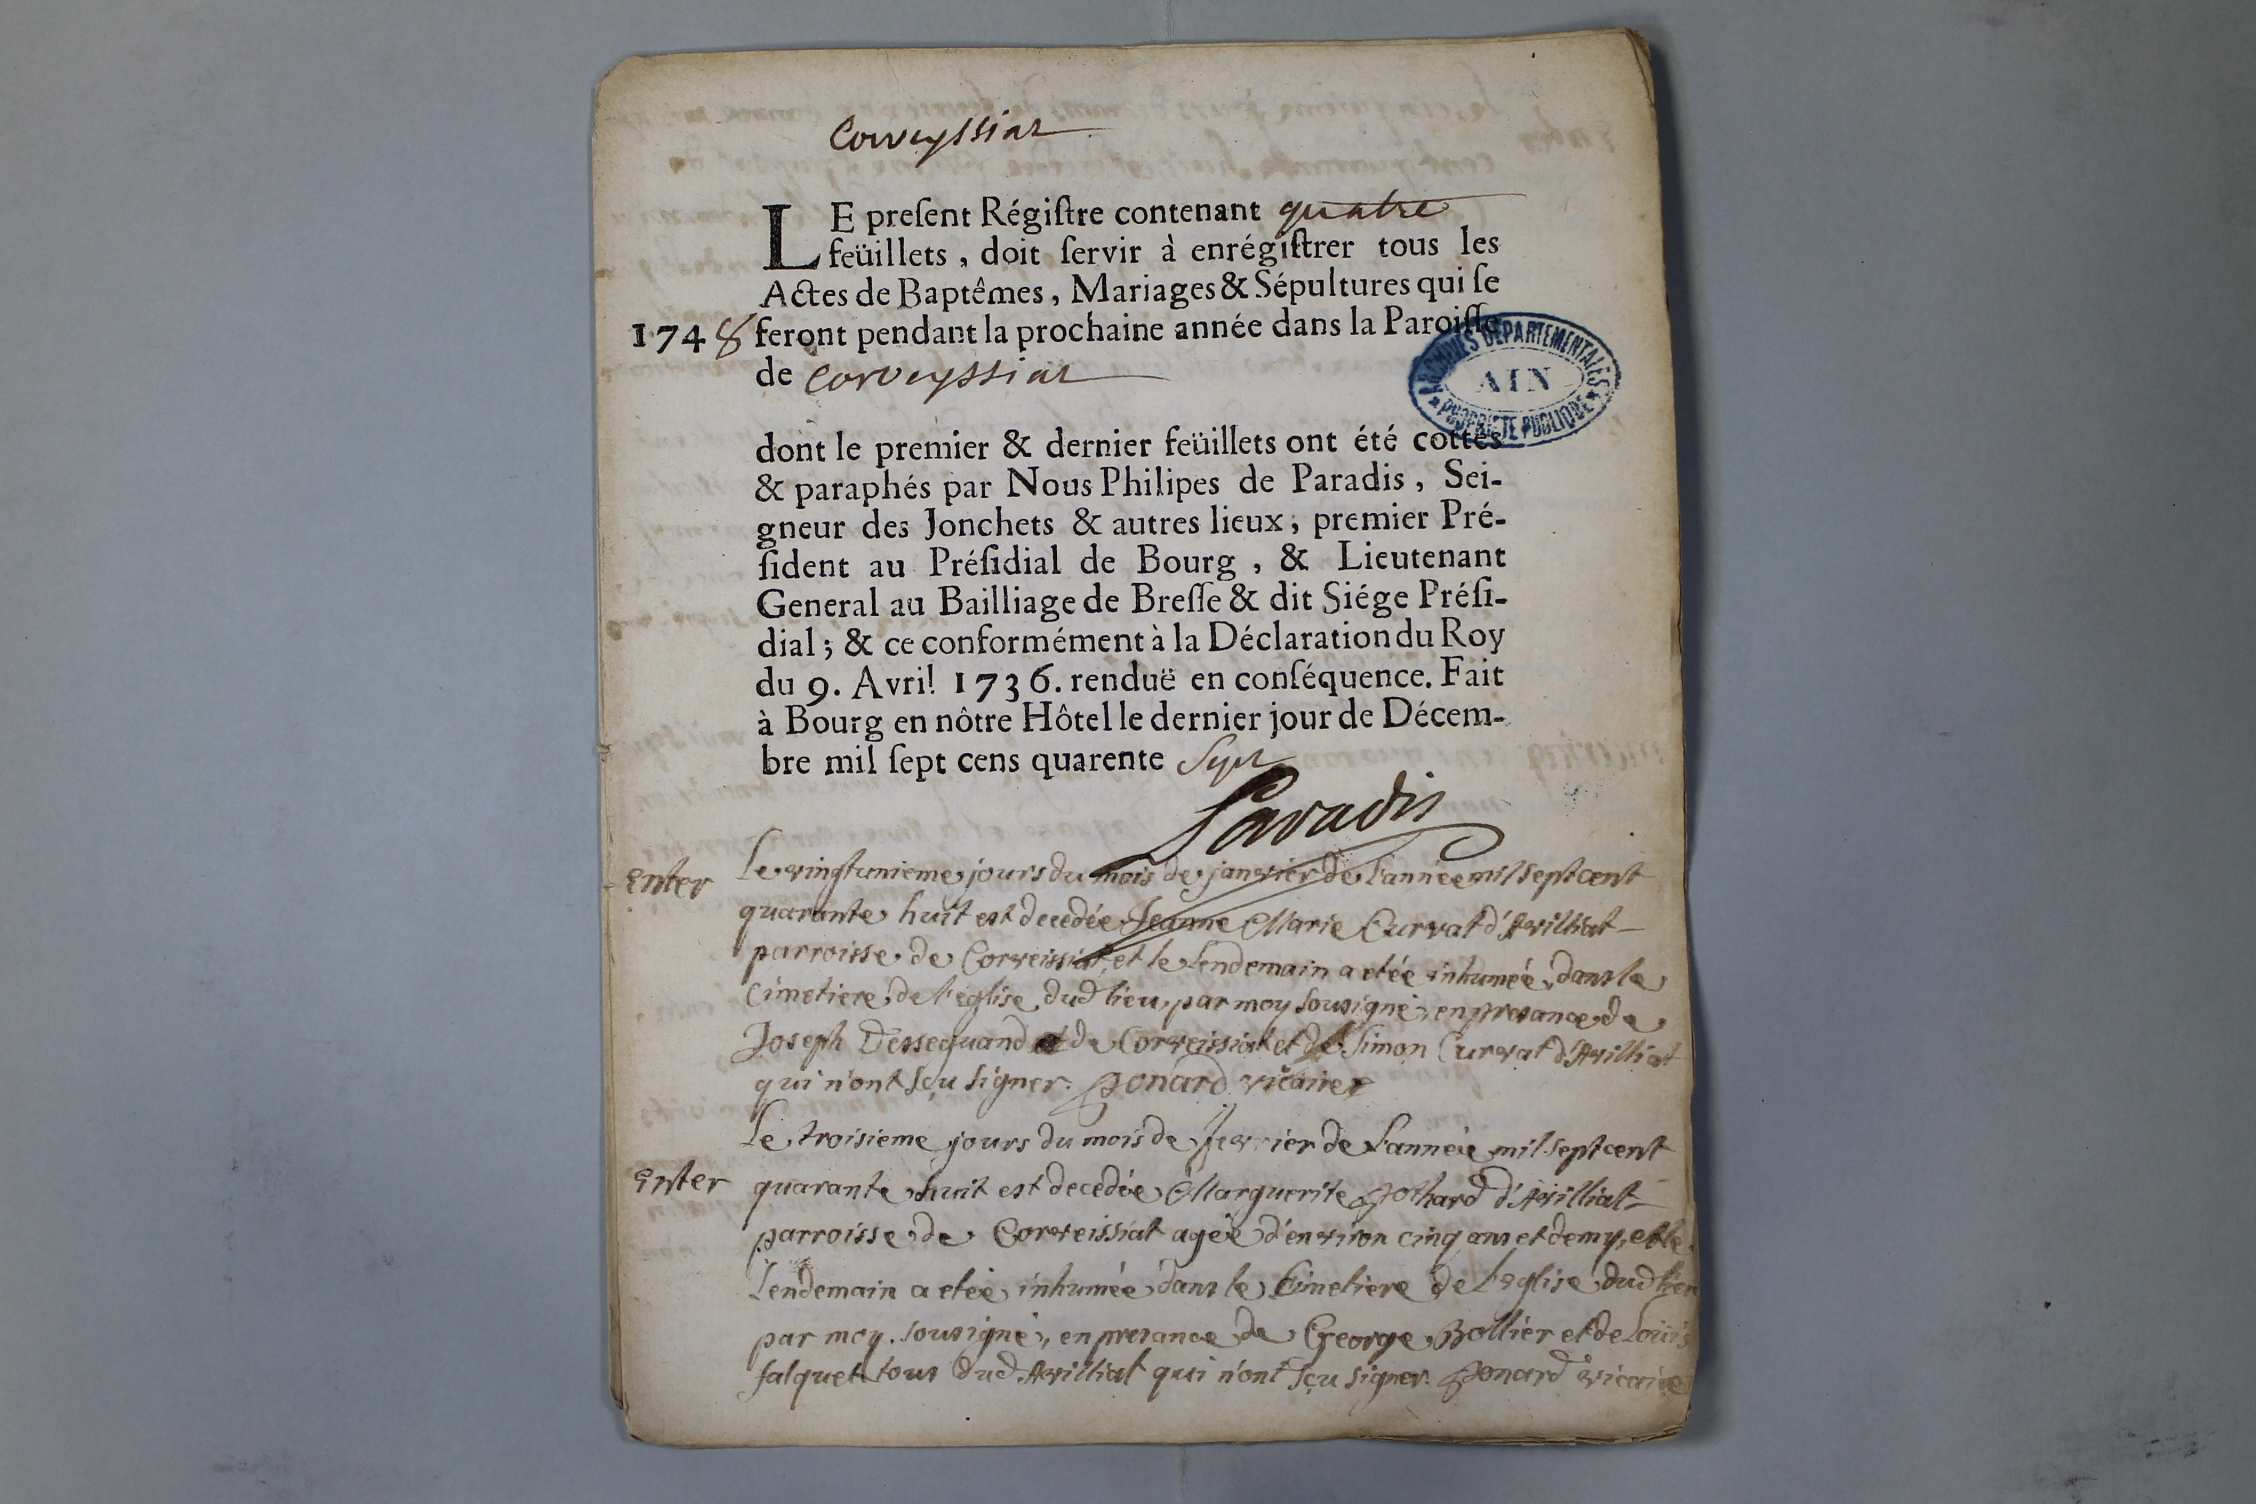 Corveyssiat
LE preſent Régiſtre contenant quatre
feüillets, doit ſervir à enrégiſtrer tous les
Actes de Baptêmes, Mariages & Sépultures qui ſe
1748 feront pendant la prochaine année dans la Paroiſſe
de Corveyssiat
ARCHIVES DEPARTEMENTALES
AIN
PROPRIETE PUBLIQUE
dont le premier & dernier feüillets ont été cottés
& paraphés par Nous Philipes de Paradis, Sei-
gneur des Jonchets & autres lieux, premier Pré-
ſident au Préſidial de Bourg, & Lieutenant
General au Bailliage de Breſſe & dit Siége Préſi-
dial; & ce conformément à la Déclaration du Roy
du 9. Avril 1736. renduë en conſéquence. Fait
à Bourg en nôtre Hôtel le dernier jour de Décem-
bre mil ſept cens quarente Sept
Paradis
Le vingtunieme jours du mois de janvier de l'année mil sept cent
enter
quarante huit est decedée Jeanne Marie Curvat d'Avilliat
parroisse de Corveissiat, et le lendemain a etée inhumée dans le
Cimetiere de l'eglise dud lieu, par moy sousigné, en presance de
Joseph Dessequand de Corveissiat et de Simon Curvat d'Avilliat
qui n'ont sçu signer. ponard vicaire
Le troisieme jours du mois de fevrier de l'année mil sept cent
enter quarante huit est decedée Marguerite pothard d'Avilliat
parroisse de Corveissiat agée d'environ cinq ans et demy, et le
lendemain a etée inhumée dans le Cimetiere de l'eglise dud lieu
par moy sousigné, en presance de George Bollier et de Loüis
falquet tous dud Avilliat qui n'ont sçu signer. ponard vicaire